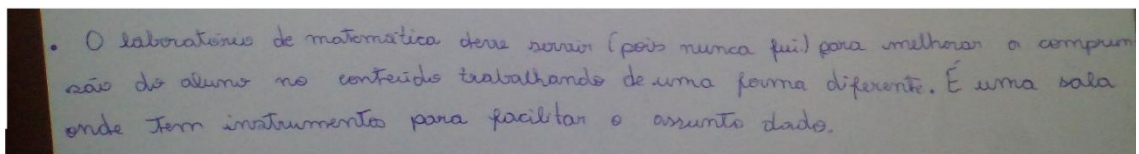 • O laboratório de matemática deve servir (pois nunca fui) para melhorar a compreen
são do aluno no conteúdo trabalhando de uma forma diferente. É uma sala
onde tem instrumentos para facilitar o assunto dado.